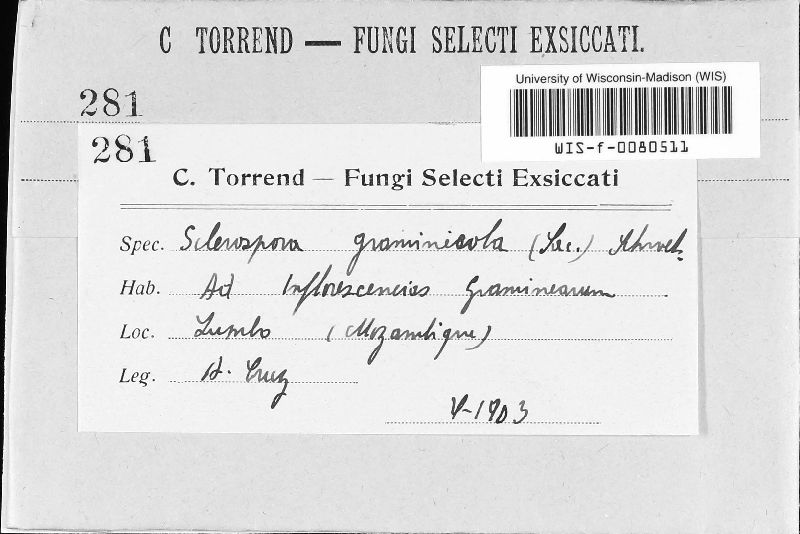 C TORREND — FUNGI SELECTI EXSICCATI.
University of Wisconsin-Madison (WIS)
281
WIS-f-0080511
281
C. Torrend — Fungi Selecti Exsiccati
Spec. Sclerospora graminicola (Sac.) Schroet.
Hab. Ad Inflorescencias Graminearum
Loc. Lumbo (Mozambique)
Leg. A. Cruz
V-1903